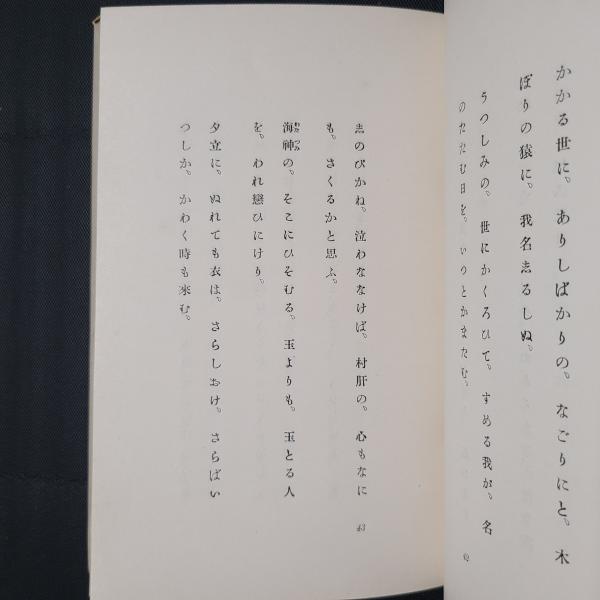 かかる世に。ありしばかりの。なごりにと。木
ぼりの猿に。我名志るしぬ。
うつしみの。世にかくろひて。すめる我が。名
のたたむ日を。いつとかまたむ。
志のびかね。泣わななけば。村肝の。心もなに
も。さくるかと思ふ。
海神の。そこにひそむる。玉よりも。玉とる人
わた つみ
を。われ戀ひにけり。
夕立に。ぬれても衣は。さらしおけ。さらばい
つしか。かわく時も來む。
43